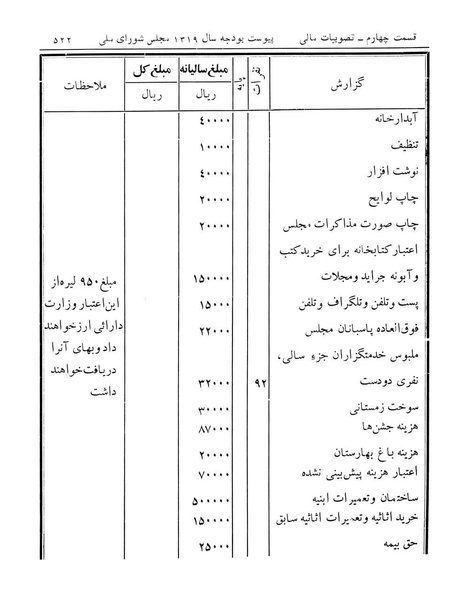 قسمت چهارم ـ تصویبات مالی پیوست بودجه سال ۱۳۱۹ مجلس شورای ملی ۵۲۲
گزارش نفرات پایه مبلغ سالیانه ریال مبلغ کل ریال ملاحظات
آبدارخانه ۴۰۰۰۰
تنظیف ۱۰۰۰۰
نوشت افزار ۴۰۰۰۰
چاپ لوایح ۲۰۰۰۰
چاپ صورت مذاکرات مجلس ۲۰۰۰۰
اعتبار کتابخانه برای خرید کتب
و آبونه جراید و مجلات ۱۵۰۰۰۰
پست و تلفن و تلگراف و تلفن ۱۵۰۰۰
فوق‌العاده پاسبانان مجلس ۲۲۰۰۰
ملبوس خدمتگزاران جزء سالی،
نفری دودست ۹۲ ۳۲۰۰۰
سوخت زمستانی ۳۰۰۰۰
هزینه جشن‌ها ۸۷۰۰۰
هزینه باغ بهارستان ۲۰۰۰۰
اعتبار هزینه پیش‌بینی نشده ۷۰۰۰۰
ساختمان و تعمیرات ابنیه ۵۰۰۰۰۰
خرید اثاثیه و تعمیرات اثاثیه سابق ۱۵۰۰۰۰
حق بیمه ۲۵۰۰۰
مبلغ ۹۵۰ لیره از
این اعتبار وزارت
دارائی ارز خواهند
داد و بهای آنرا
دریافت خواهند
داشت